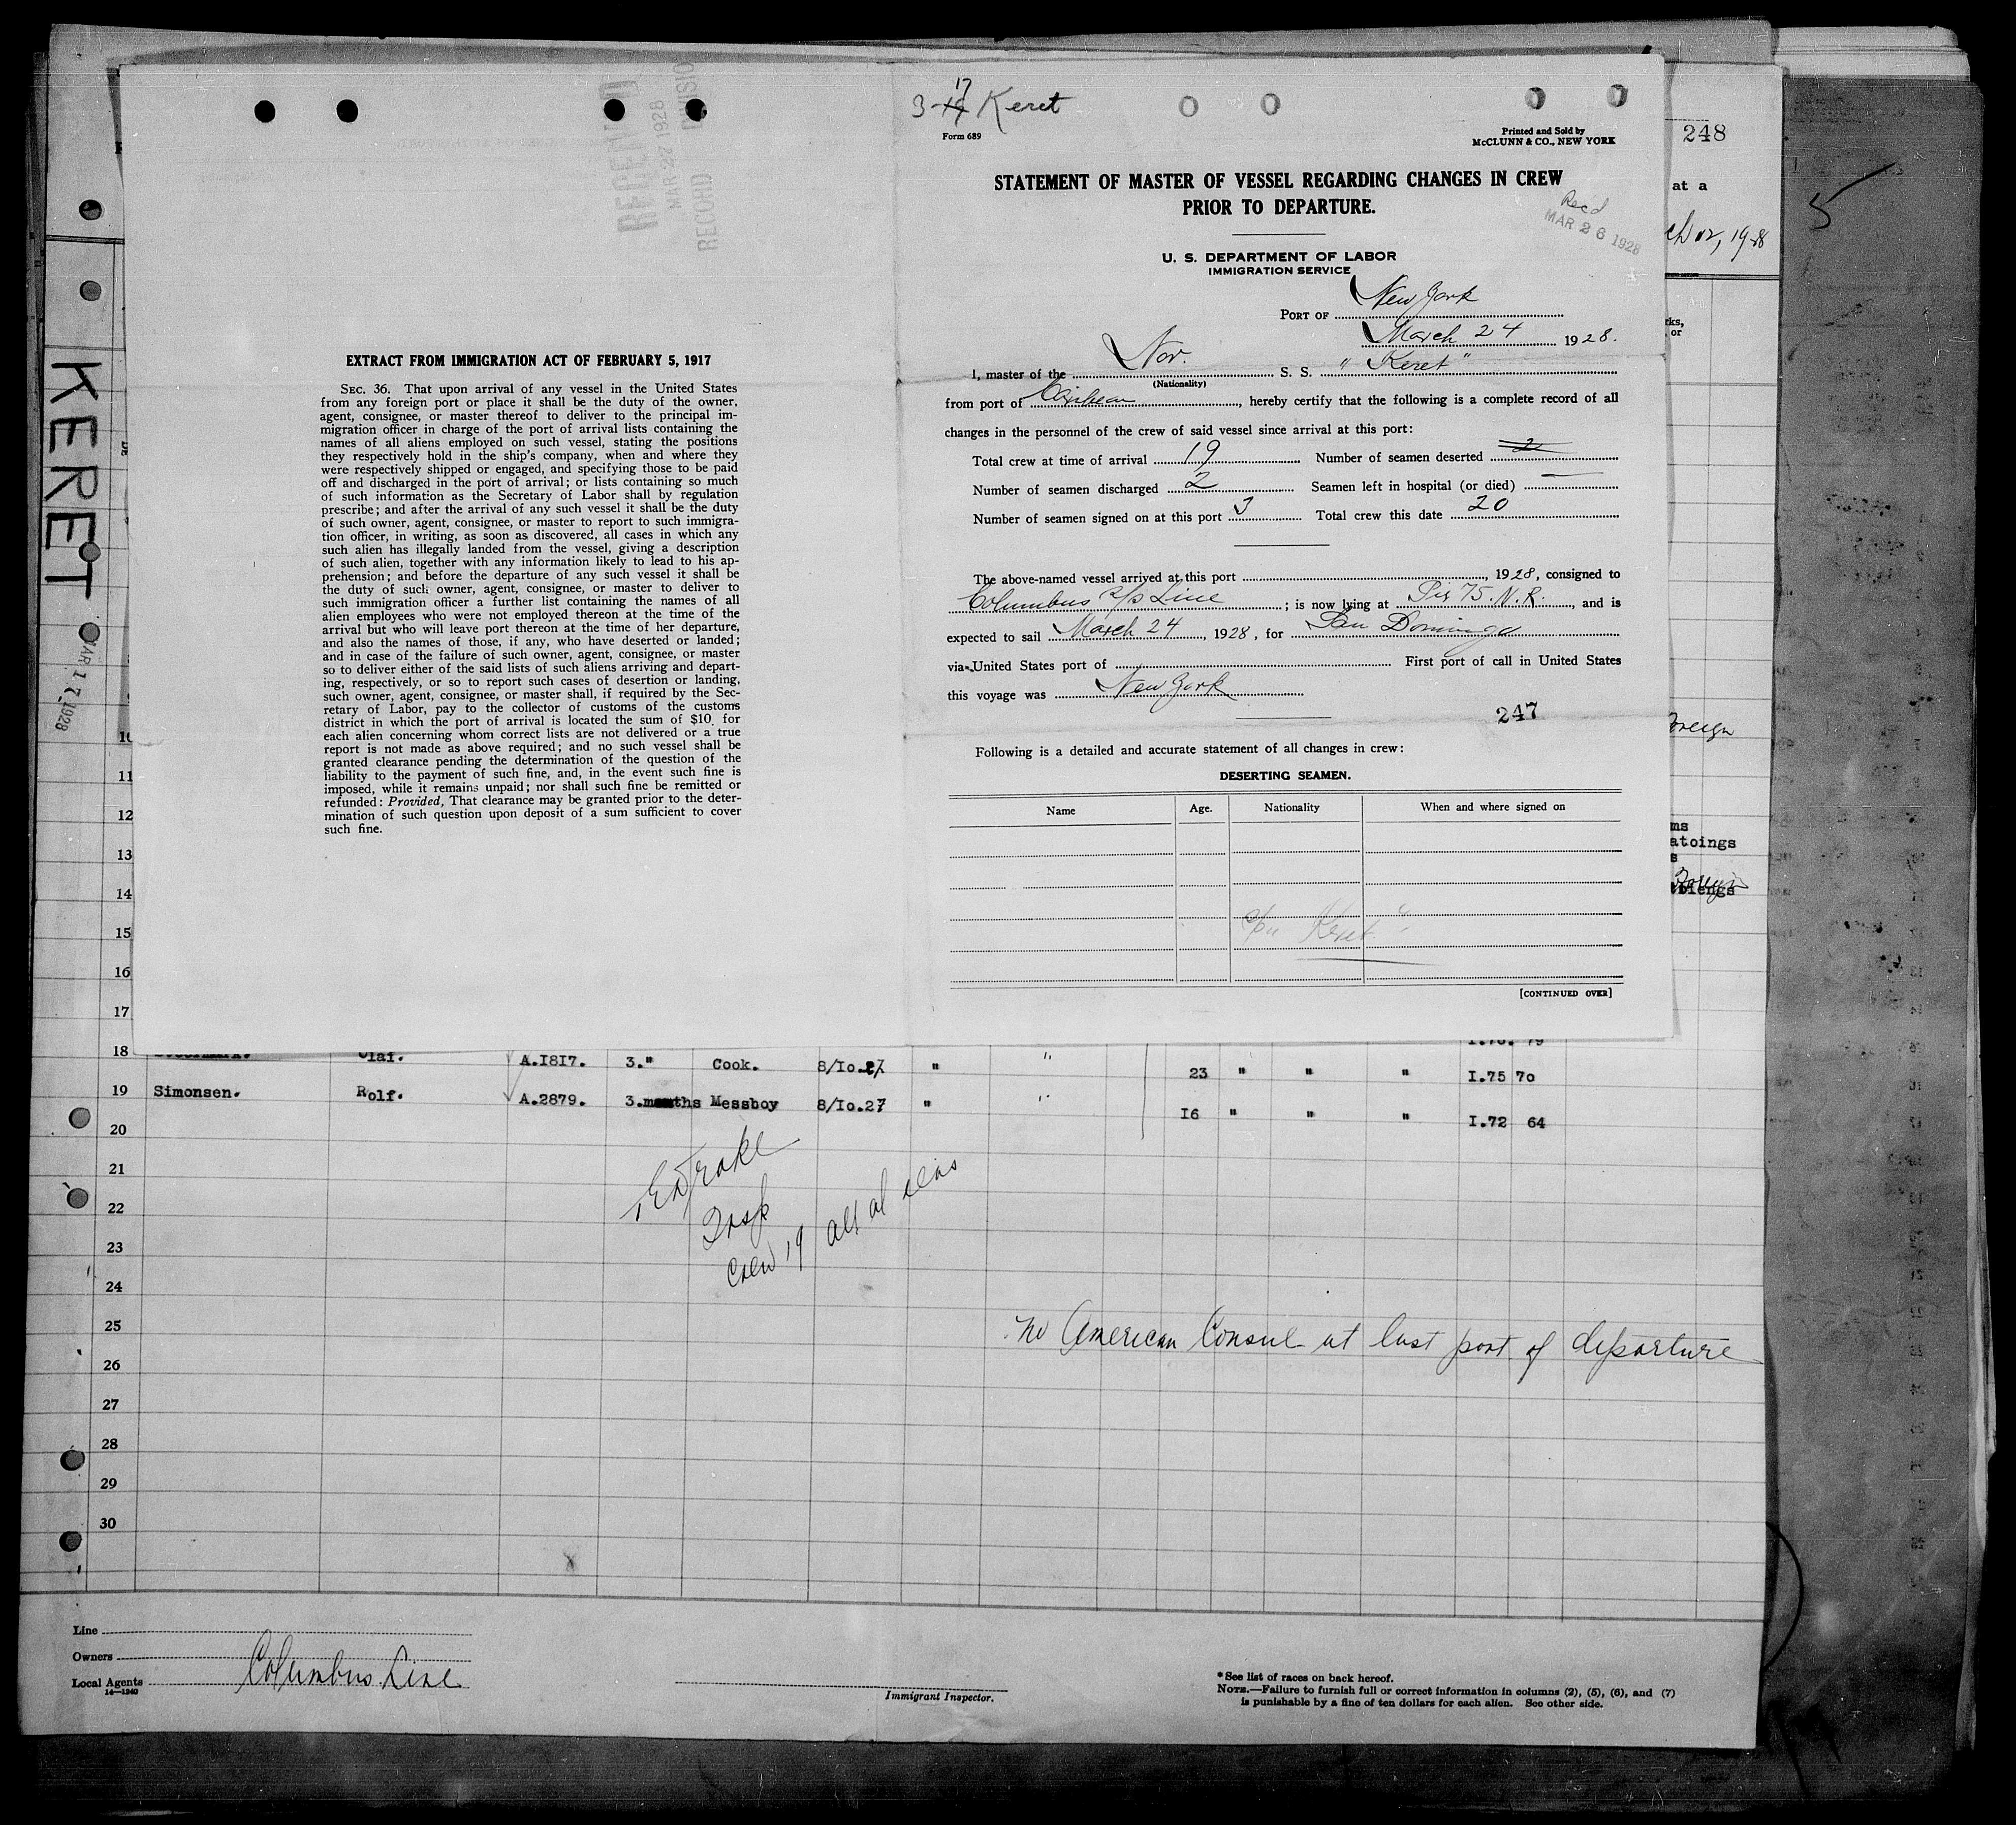 RECEIVED
MAR 27 1928
RECORD DIVISION
EXTRACT FROM IMMIGRATION ACT OF FEBRUARY 5, 1917
SEC. 36. That upon arrival of any vessel in the United States
from any foreign port or place it shall be the duty of the owner,
agent, consignee, or master thereof to deliver to the principal im-
migration officer in charge of the port of arrival lists containing the
names of all aliens employed on such vessel, stating the positions
they respectively hold in the ship's company, when and where they
were respectively shipped or engaged, and specifying those to be paid
off and discharged in the port of arrival; or lists containing so much
of such information as the Secretary of Labor shall by regulation
prescribe; and after the arrival of any such vessel it shall be the duty
of such owner, agent, consignee, or master to report to such immigra-
tion officer, in writing, as soon as discovered, all cases in which any
such alien has illegally landed from the vessel, giving a description
of such alien, together with any information likely to lead to his ap-
prehension; and before the departure of any such vessel it shall be
the duty of such owner, agent, consignee, or master to deliver to
such immigration officer a further list containing the names of all
alien employees who were not employed thereon at the time of the
arrival but who will leave port thereon at the time of her departure,
and also the names of those, if any, who have deserted or landed;
and in case of the failure of such owner, agent, consignee, or master
so to deliver either of the said lists of such aliens arriving and depart-
ing, respectively, or so to report such cases of desertion or landing,
such owner, agent, consignee, or master shall, if required by the Sec-
retary of Labor, pay to the collector of customs of the customs
district in which the port of arrival is located the sum of $10 for
each alien concerning whom correct lists are not delivered or a true
report is not made as above required; and no such vessel shall be
granted clearance pending the determination of the question of the
liability to the payment of such fine, and, in the event such fine is
imposed, while it remains unpaid; nor shall such fine be remitted or
refunded: Provided, That clearance may be granted prior to the deter-
mination of such question upon deposit of a sum sufficient to cover
such fine.
3-17 Keret
Form 689
Printed and Sold by
McCLUNN & CO., NEW YORK
STATEMENT OF MASTER OF VESSEL REGARDING CHANGES IN CREW
PRIOR TO DEPARTURE.
Rec'd
MAR 26 1928
U. S. DEPARTMENT OF LABOR
IMMIGRATION SERVICE
PORT OF New York
March 24 1928.
I, master of the Nor. S. S. "Keret"
(Nationality)
from port of , hereby certify that the following is a complete record of all
changes in the personnel of the crew of said vessel since arrival at this port:
Total crew at time of arrival 19 Number of seamen deserted 2
Number of seamen discharged 2 Seamen left in hospital (or died) —
Number of seamen signed on at this port 3 Total crew this date 20
The above-named vessel arrived at this port , 1928, consigned to
Columbus S/S Line ; is now lying at Pier 75 N.R. , and is
expected to sail March 24 , 1928, for San Domingo
via United States port of First port of call in United States
this voyage was New York
247
Following is a detailed and accurate statement of all changes in crew:
DESERTING SEAMEN.
Name Age. Nationality When and where signed on
Keret"
[CONTINUED OVER]
248
at a
ch 12, 1928
rks,
or
Foreign
ms
atoings
s
Foreign
5
KERET
MAR 17 1928
10
11
12
13
14
15
16
17
18 Olaf. A.1817. 3." Cook. 8/10.27 " " 23 " " " I.75 70
19 Simonsen. Rolf. A.2879. 3.months Messboy 8/10.27 " " 16 " " " I.72 64
20
21
22
23
24
25
26
27
28
29
30
Crew 19 all aliens
No American Consul at last port of departure
Line
Owners
Local Agents Columbus Line
14—1240
Immigrant Inspector.
*See list of races on back hereof.
NOTE.—Failure to furnish full or correct information in columns (2), (5), (6), and (7)
is punishable by a fine of ten dollars for each alien. See other side.